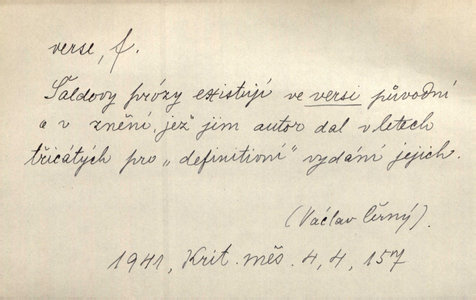 verse, f.
Šaldovy prózy existují ve versi původní
a v znění, jež jim autor dal v letech
třicátých pro „definitivní" vydání jejich.
(Václav Černý).
1941, Krit. měs. 4, 4, 157